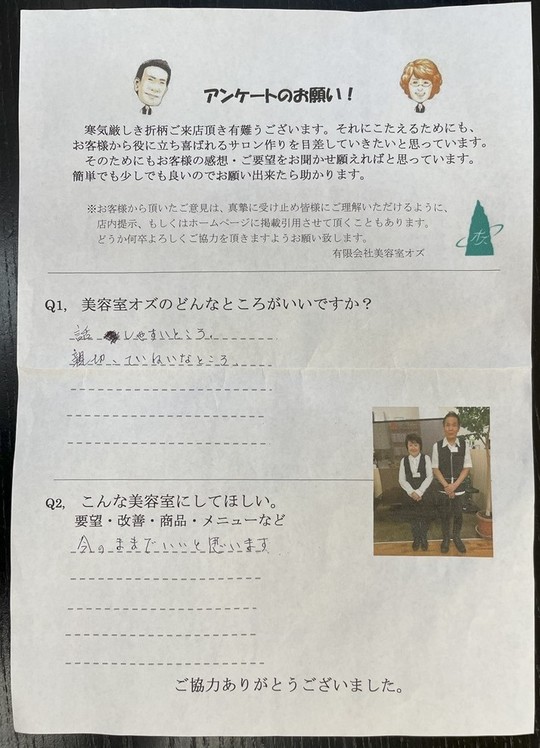 アンケートのお願い！
寒気厳しき折柄ご来店頂き有難うございます。それにこたえるためにも、
お客様から役に立ち喜ばれるサロン作りを目差していきたいと思っています。
そのためにもお客様の感想・ご要望をお聞かせ願えればと思っています。
簡単でも少しでも良いのでお願い出来たら助かります。
※お客様から頂いたご意見は、真摯に受け止め皆様にご理解いただけるように、
店内提示、もしくはホームページに掲載引用させて頂くこともあります。
どうか何卒よろしくご協力を頂きますようお願い致します。
有限会社美容室オズ
オズ
Q1, 美容室オズのどんなところがいいですか？
話しやすいところ。
親切、ていねいなところ。
Q2, こんな美容室にしてほしい。
要望・改善・商品・メニューなど
今のままでいいと思います
ご協力ありがとうございました。